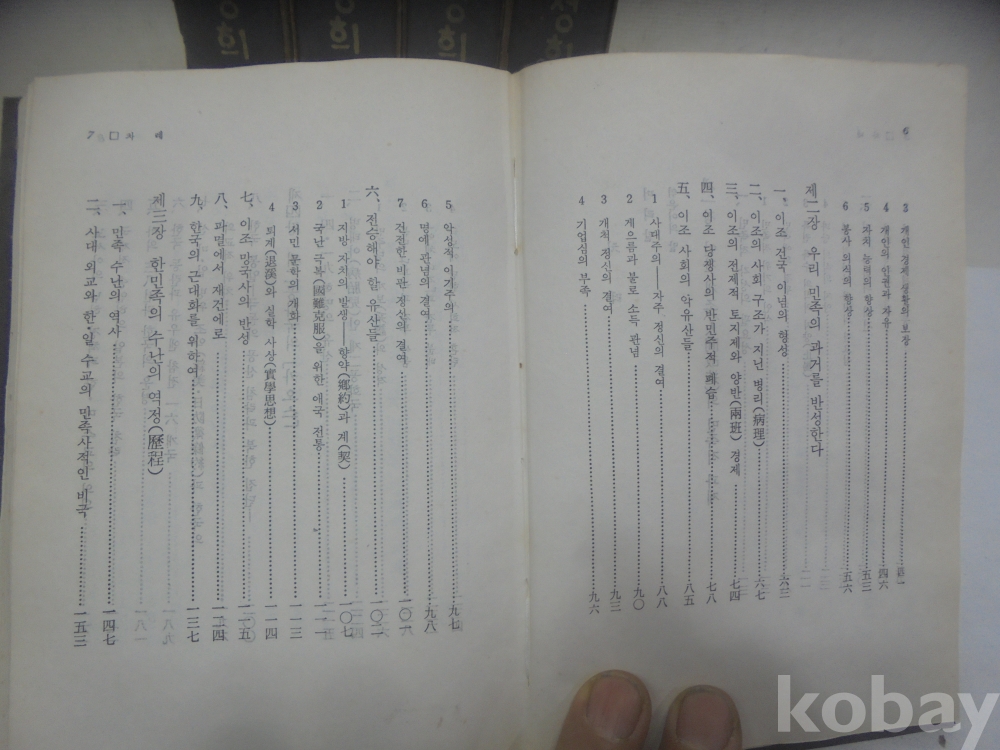 정희
6
3 개인 경제 생활의 보장
4 개인의 인권과 자유……四六
5 자치 능력의 향상……五三
6 봉사 의식의 향상……五六
제二장 우리 민족의 과거를 반성한다
一、이조 건국 이념의 형성……六三
二、이조의 사회 구조가 지닌 병리(病理)……六七
三、이조의 전제적 토지제와 양반(兩班) 경제……七四
四、이조 당쟁사의 반민주적 폐습……七八
五、이조 사회의 악유산들……八五
1 사대주의——자주 정신의 결여……八八
2 게으름과 불로 소득 관념……九〇
3 개척 정신의 결여……九三
4 기업심의 부족……九六
7 □ 차 례
5 악성적 이기주의……九七
6 명예 관념의 결여……九八
7 건전한 비판 정신의 결여……一〇〇
六、전승해야 할 유산들……一〇二
1 지방 자치의 발생——향약(鄕約)과 계(契)……一〇七
2 국난 극복(國難克服)을 위한 애국 전통……一一一
3 서민 문학의 개화……一一三
4 퇴계(退溪)와 실학 사상(實學思想)……一一四
七、이조 망국사의 반성……一一五
八、파멸에서 재건에로……一二四
九、한국의 근대화를 위하여……一三七
제三장 한민족의 수난의 역정(歷程)
一、민족 수난의 역사……一四七
二、사대 외교와 한·일 수교의 민족사적인 비극……一五三
kobay